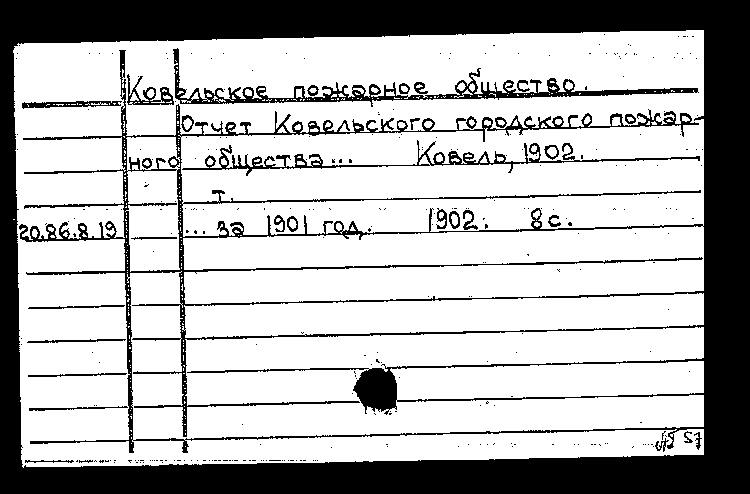 Ковельское пожарное общество.
Отчет Ковельского городского пожар-
ного общества... Ковель, 1902.
т.
20.86.8.19 ... за 1901 год. 1902. 8 с.
57